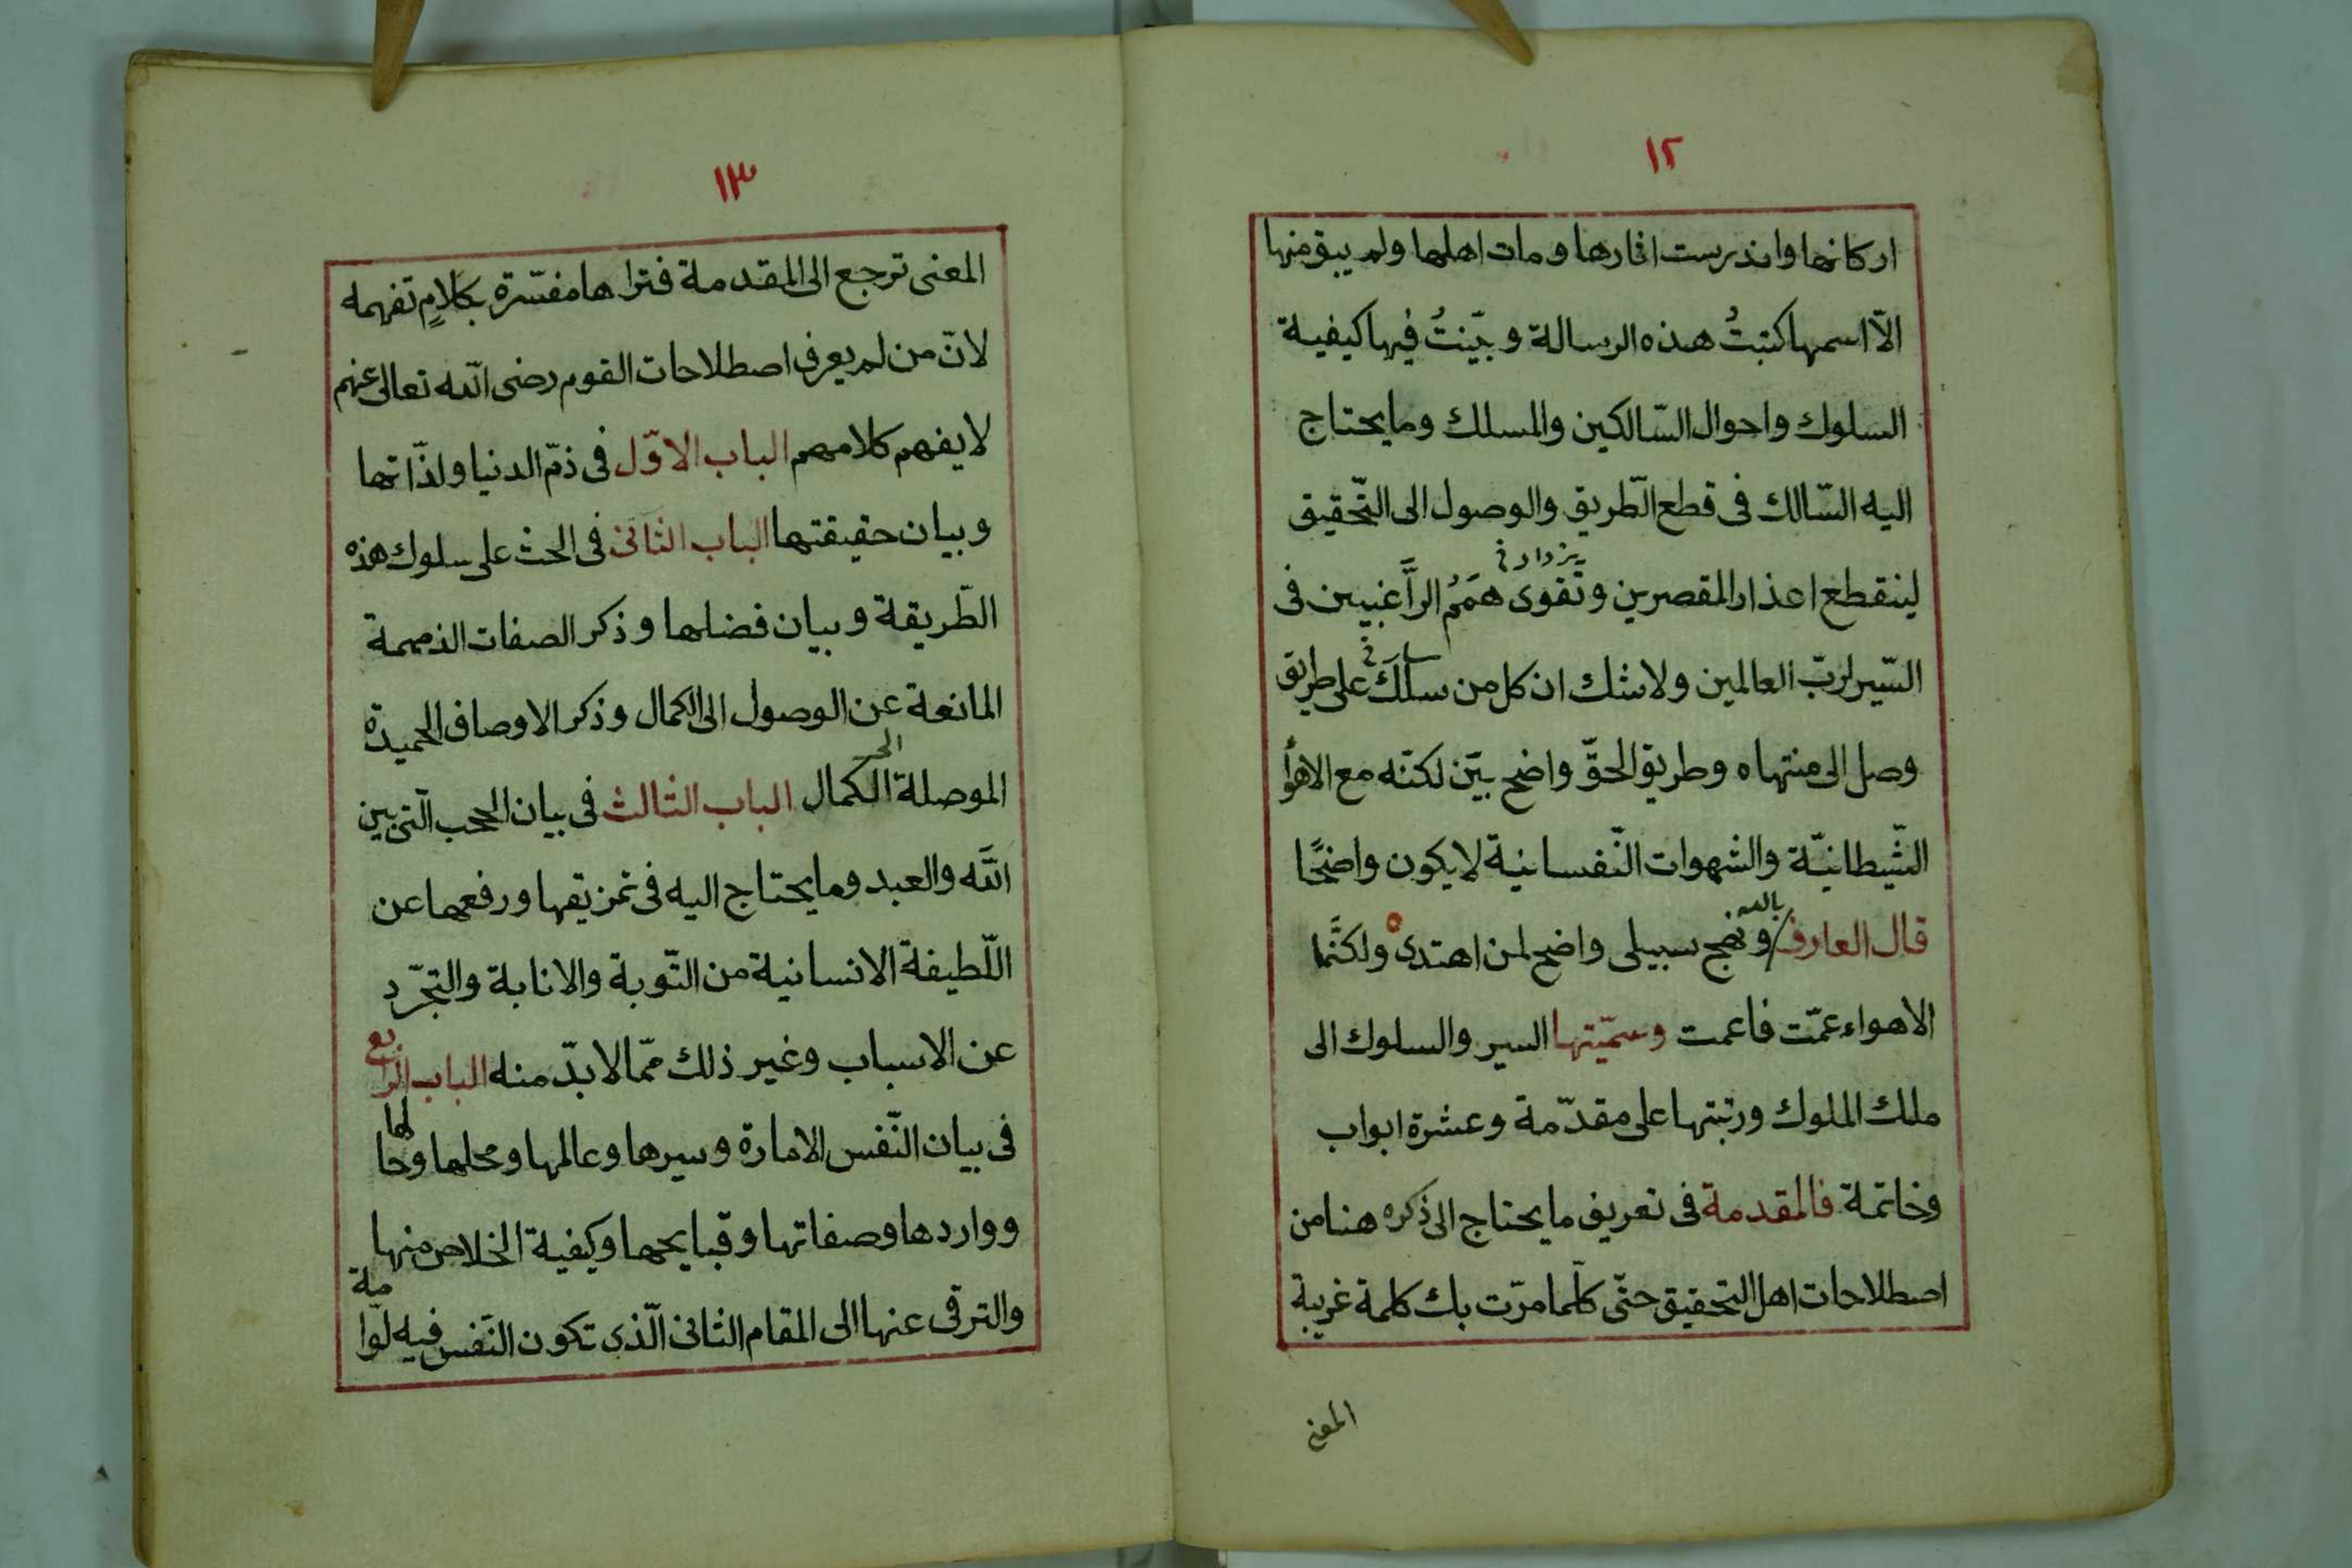 ١٢
اركانها واندرست اثارها ومات اهلها ولم يبق منها
الّا اسمها كتبتُ هذه الرسالة وبيّنتُ فيها كيفية
السلوك واحوال السّالكين والمسلك وما يحتاج
اليه السّالك فى قطع الطّريق والوصول الى التّحقيق
يزداد خ
لينقطع اعذار المقصرين وتقوى هممُ الرَّاغبيين فى
السّير لربّ العالمين ولا شك ان كل من سلَكَ على طريق
وصل الى منتهاه وطريق الحقّ واضح بيّن لكنّه مع الاهوا
الشّيطانيّة والشهوات النّفسانية لا يكون واضحًا
قال العارف بالله ونهج سبيلى واضح لمن اهتدى ولكنَّما
الاهواء عمّت فاعمت وسمّيتها السير والسلوك الى
ملك الملوك ورتبتها على مقدّمة وعشرة ابواب
وخاتمة فالمقدمة فى تعريف ما يحتاج الى ذكره هنا من
اصطلاحات اهل التحقيق حتّى كلّما مرّت بك كلمة غريبة
المعنى
١٣
المعنى ترجع الى المقدمة فتراها مفسّرة بكلامٍ تفهمه
لانّ من لم يعرف اصطلاحات القوم رضى الله تعالى عنهم
لا يفهم كلامهم الباب الاوّل فى ذمّ الدنيا ولذّاتها
وبيان حقيقتها الباب الثانى فى الحث على سلوك هذه
الطّريقة وبيان فضلها وذكر الصفات الذميمة
المانعة عن الوصول الى الكمال وذكر الاوصاف الحميدة
الموصلة الى الكمال الباب الثالث فى بيان الحجب الّتى بين
الله والعبد وما يحتاج اليه فى تمزيقها ورفعها عن
اللّطيفة الانسانية من التّوبة والانابة والتجرّد
عن الاسباب وغير ذلك ممّا لا بدّ منه الباب الرابع
فى بيان النّفس الامارة وسيرها وعالمها ومحلها وحالها
وواردها وصفاتها وقبايحها وكيفية الخلاص منها
والترقى عنها الى المقام الثانى الّذى تكون النّفس فيه لوّامة